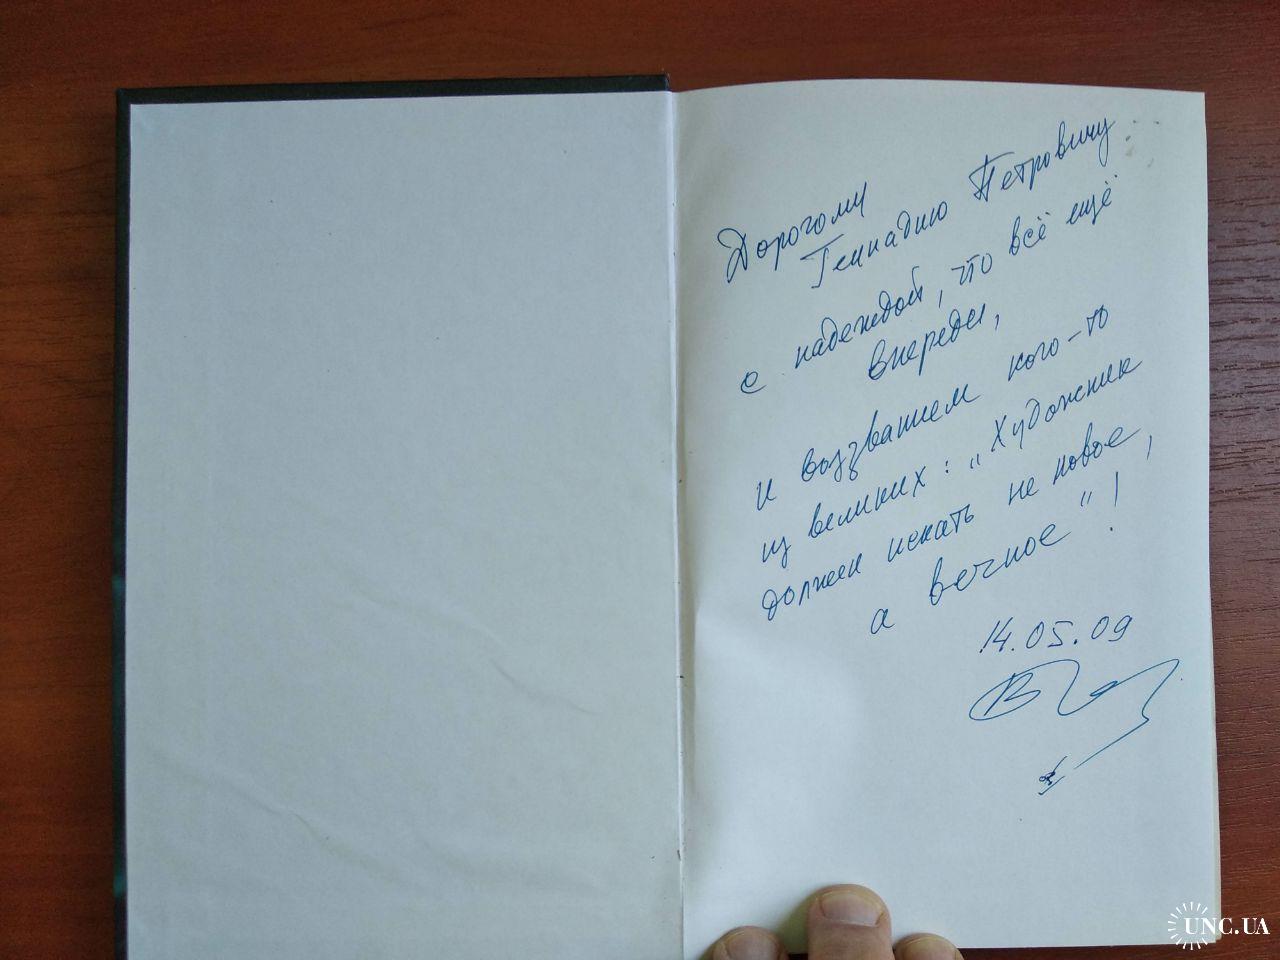 Дорогому
Геннадию Петровичу
с надеждой, что всё ещё
впереди,
и воззванием кого-то
из великих: „Художник
должен искать не новое,
а вечное"!
14.05.09
UNC.UA